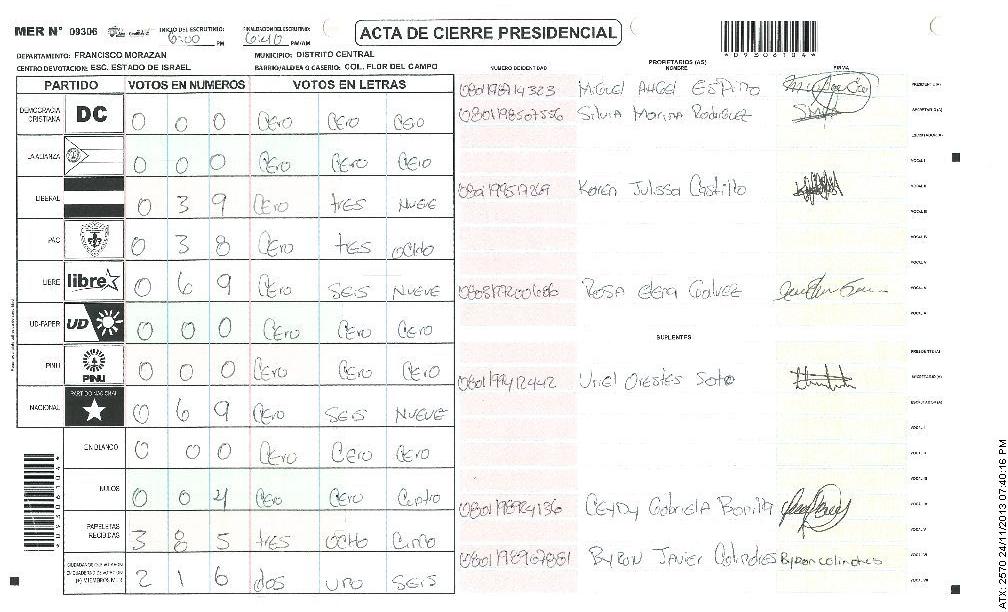 MER N° 09306 INICIO DEL ESCRUTINIO: 6:00 PM FINALIZACION DEL ESCRUTINIO: 6:40 PM/AM ACTA DE CIERRE PRESIDENCIAL *09306104*
DEPARTAMENTO: FRANCISCO MORAZAN MUNICIPIO: DISTRITO CENTRAL
CENTRO DE VOTACION: ESC. ESTADO DE ISRAEL BARRIO/ALDEA O CASERIO: COL. FLOR DEL CAMPO
NUMERO IDENTIDAD PROPIETARIOS (AS) NOMBRE FIRMA
PARTIDO VOTOS EN NUMEROS VOTOS EN LETRAS
DEMOCRACIA CRISTIANA DC 0 0 0 Cero Cero Cero
LA ALIANZA 0 0 0 Cero Cero Cero
LIBERAL 0 3 9 Cero tres Nueve
PAC 0 3 8 Cero tres ocho
LIBRE libre 0 6 9 Cero Seis Nueve
UD-FAPER UD 0 0 0 Cero Cero Cero
PINU PINU 0 0 0 Cero Cero Cero
NACIONAL PARTIDO NACIONAL 0 6 9 Cero Seis Nueve
EN BLANCO 0 0 0 Cero Cero Cero
NULOS 0 0 4 Cero Cero Cuatro
PAPELETAS RECIBIDAS 3 8 5 tres ocho Cinco
2 1 6 dos uno Seis
Miguel Angel Espino PRESIDENTE(A)
0801198507556 Silvia Marina Rodriguez SECRETARIO(A)
ESCRUTADOR(A)
VOCAL I
Karen Julissa Castillo VOCAL II
VOCAL III
VOCAL IV
VOCAL V
Rosa Elena Galvez
SUPLENTES
PRESIDENTE(A)
0801199412442 Uriel Orestes Soto SECRETARIO(A)
ESCRUTADOR(A)
VOCAL I
VOCAL II
VOCAL III
Ceydy Gabriela Bonilla
VOCAL V
Byron Javier Colindres Byron colindres
ATX: 2570 24/11/2013 07:40:16 PM